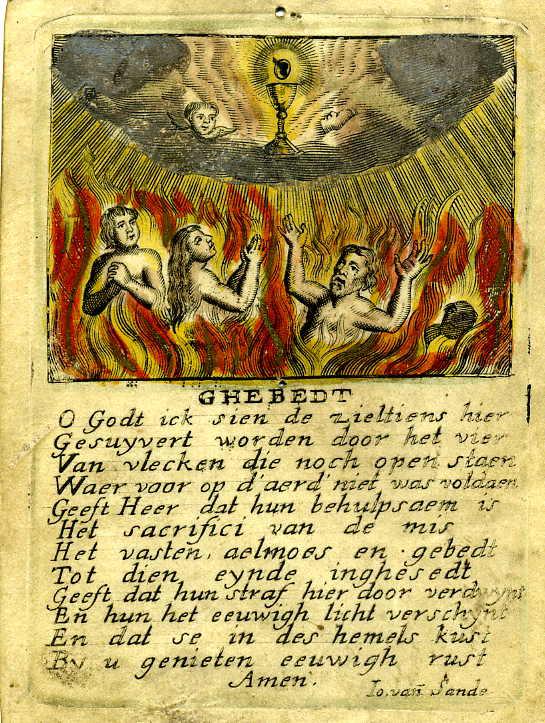 GHEBEDT
O Godt ick sien de zieltiens hier
Gesuyvert worden door het vier
Van vlecken die noch open staen
Waer voor op d'aerd' niet was voldaen
Geeft Heer dat hun behulpsaem is
Het sacrifici van de mis
Het vasten, aelmoes en gebedt
Tot dien eynde inghesedt
Geeft dat hun straf hier door verdwynt
En hun het eeuwigh licht verschynt
En dat se in des hemels kust
By u genieten eeuwigh rust
Amen.
Io. van Sande